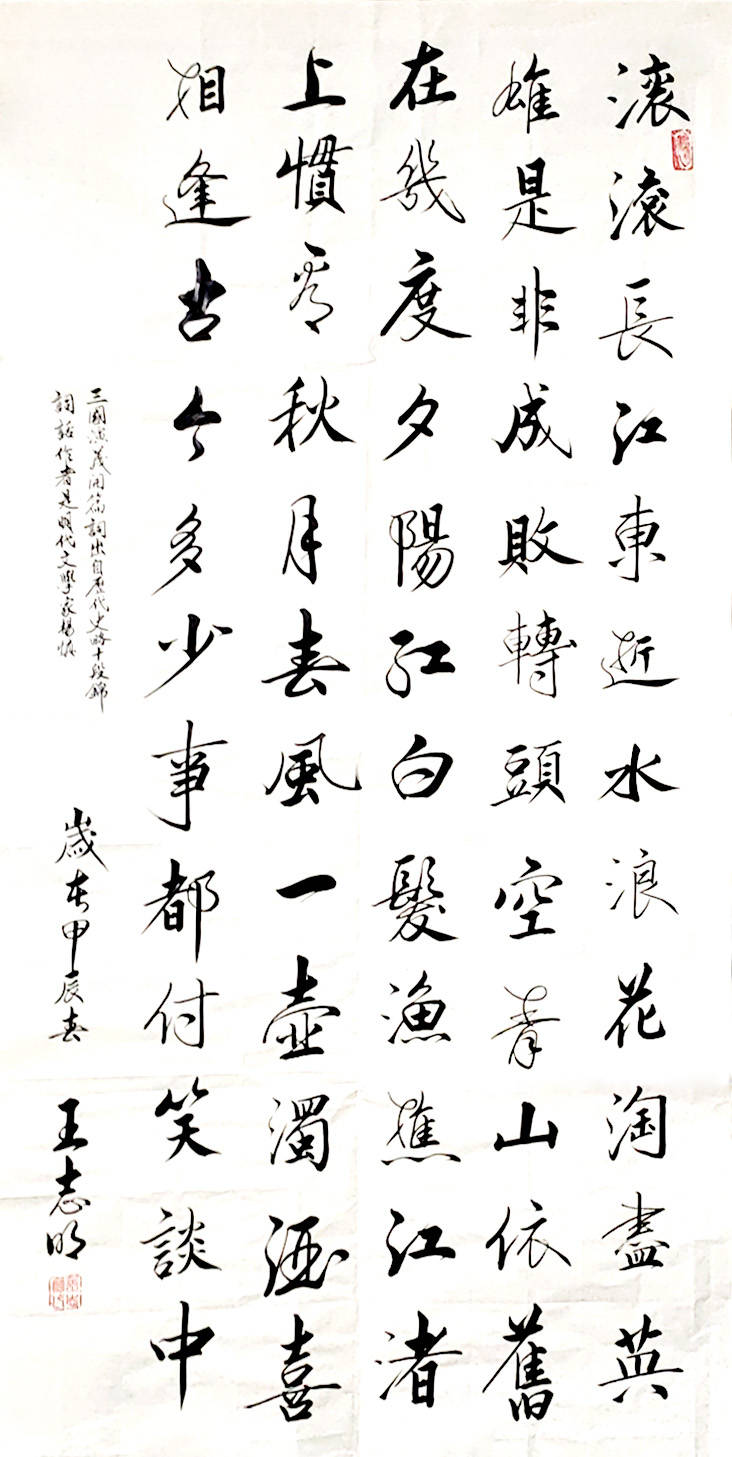 滚滚長江東逝水浪花淘盡英
雄是非成敗轉頭空青山依舊
在幾度夕陽紅白髮漁樵江渚
上慣看秋月春風一壺濁酒喜
相逢古今多少事都付笑談中
三國演義開篇詞出自歷代史略十段錦
詞話作者是明代文學家楊慎
歲在甲辰春
王志明